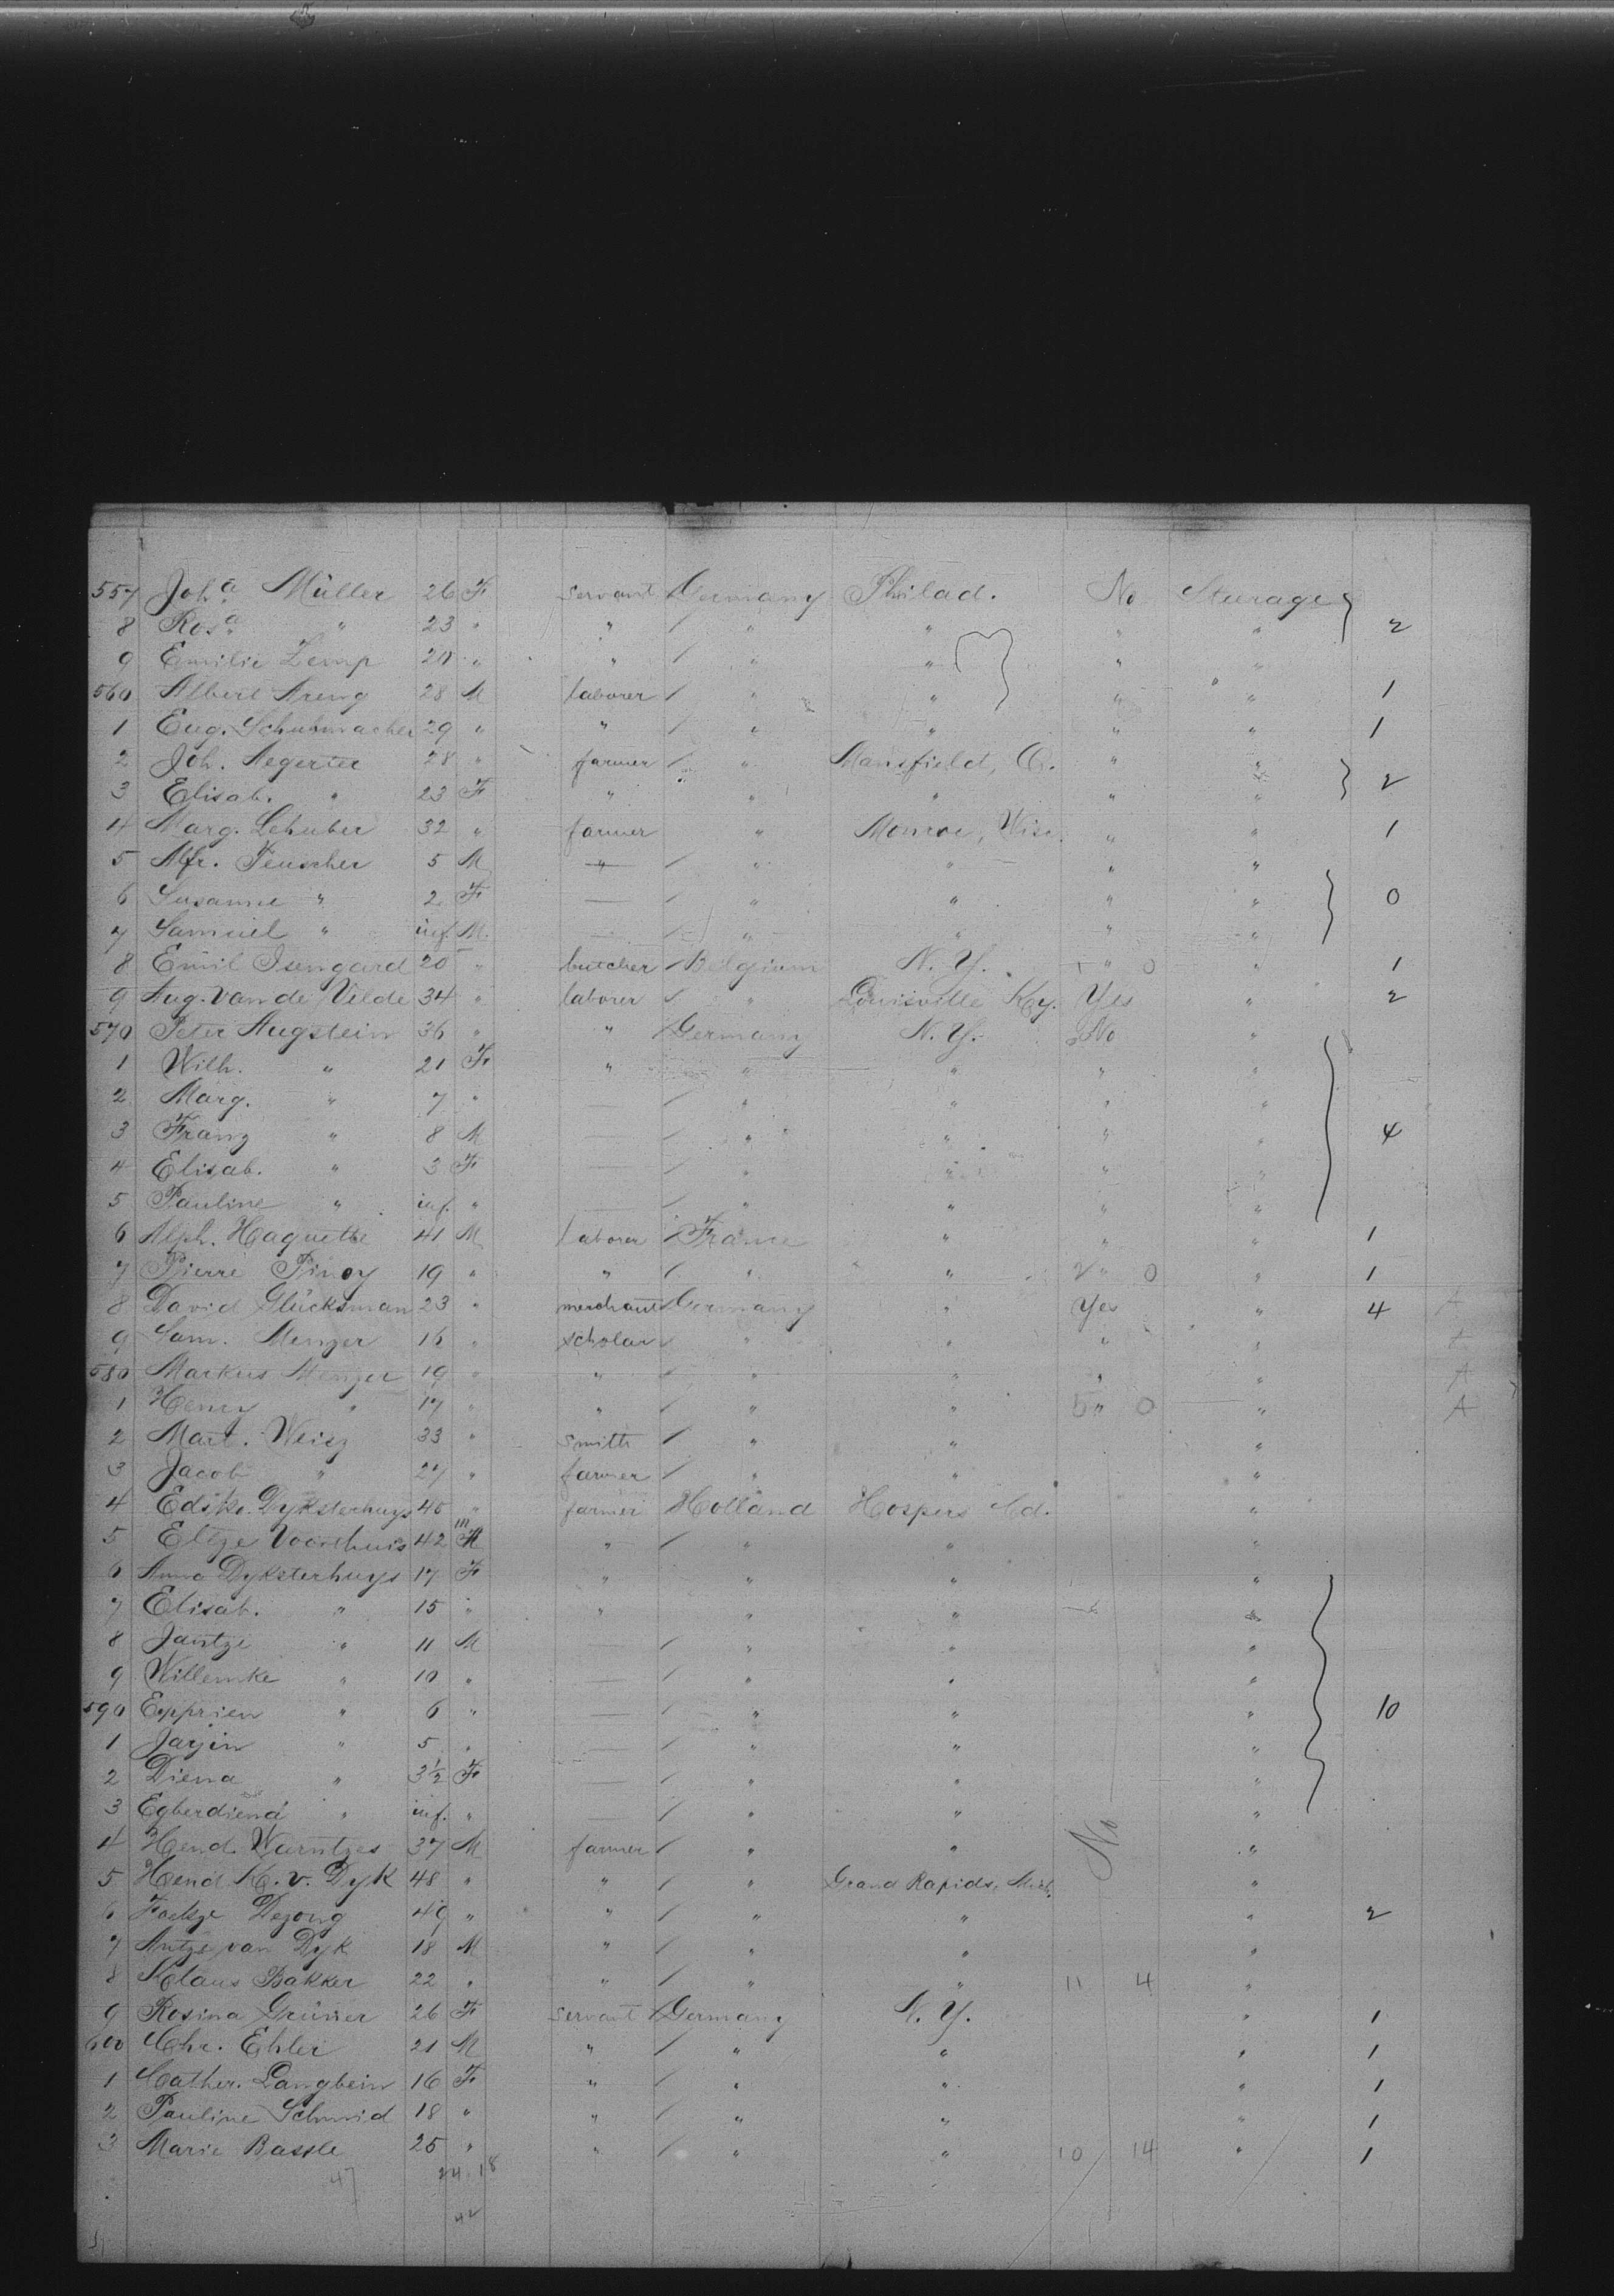 557 Joh.a Müller 26 F servant Germany Philad. No Sturage
8 Rosa " 23 " " " " " " 2
9 Emilie Lemp 20 " " " " " "
560 Albert Areng 28 M laborer " " " " 1
1 Eug. Schuhmacher 29 " " " " " " 1
2 Joh. Aegerter 28 " farmer " Mansfield, O. " "
3 Elisab. " 23 F " " " " " 2
4 Marg. Lehuber 32 " farmer " Monroe, Wisc. " " 1
5 Alfr. Teuscher 5 M " " " " "
6 Susanne " 2 F — " " " " 0
7 Samuel " inf. M. — " " " "
8 Emil Isengard 20 " butcher Belgium N. Y. 1 " 0 " 1
9 Aug. Van de Velde 34 " laborer " Louisville Ky. Yes " 2
570 Peter Augstein 36 " " Germany N. Y. No "
1 Wilh. " 21 F " " " " "
2 Marg. " 7 " — " " " "
3 Franz " 8 M — " " " " 4
4 Elisab. " 3 F — " " " "
5 Pauline " inf. " — " " " "
6 Alph. Haquette 41 M laborer France " " " 1
7 Pierre Pinoy 19 " " " " 2 " 0 " 1
8 David Glücksman 23 " merchant Germany " Yes " 4 A
9 Sam. Menzer 16 " scholar " " " "
580 Markus Menzer 19 " " " " " " A
1 Henry " 17 " " " " 5 " 0 " A
2 Mart. Weisz 33 " smith " " "
3 Jacob " 27 " farmer " " "
4 Edske Dyksterhuys 40 " farmer Holland Hospers Cd. "
5 Eltze Voorthuis 42 m " " " "
6 Anna Dyksterhuys 17 F " " " "
7 Elisab. " 15 " " " " "
8 Jantze " 11 M — " " "
9 Willemke " 10 " — " " "
590 Epprien " 6 " — " " " 10
1 Jarjin " 5 " — " " "
2 Diena " 3½ F — " " "
3 Egberdiena " inf. " — " " "
4 Hend. Warntzes 37 M farmer " " No "
5 Hend K. v. Dyk 48 " " " Grand Rapids, Mich. "
6 Foekze Dezong 49 " " " " " 2
7 Antze van Dyk 18 M " " " "
8 Klaus Bakker 22 " " " " 11 4 "
9 Rosina Grüner 26 F servant Germany N. Y. " 1
600 Chr. Ehler 21 M " " " " 1
1 Cather. Langbein 16 F " " " " 1
2 Pauline Schmid 18 " " " " " 1
3 Marie Bassle 25 " " " " 10 14 " 1
47 24 18
42